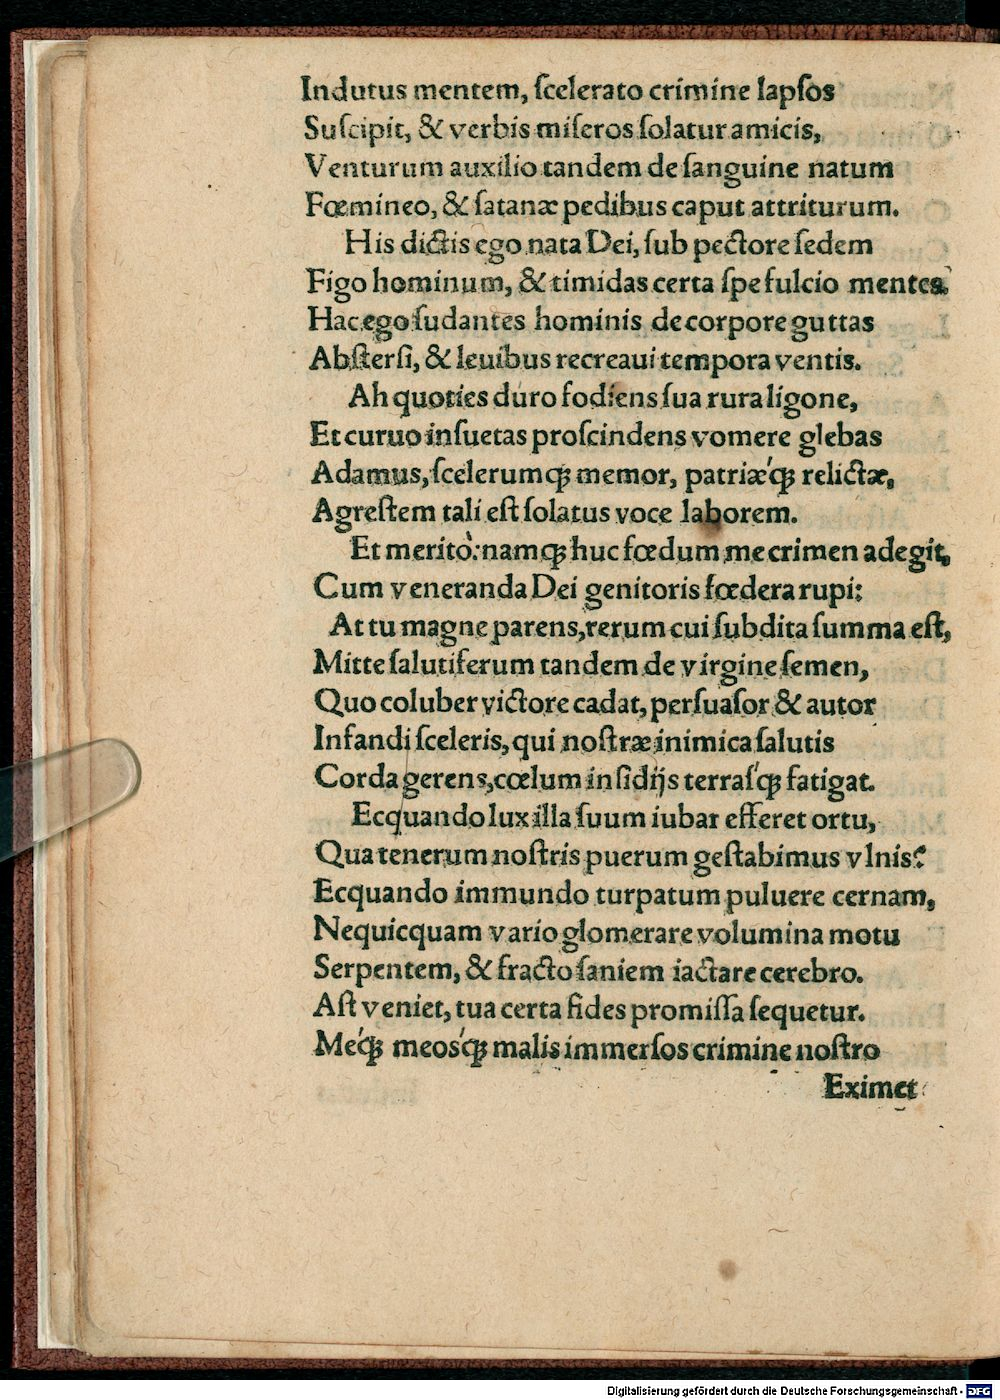 Indutus mentem, ſcelerato crimine lapſos
Suſcipit, & verbis miſeros ſolatur amicis,
Venturum auxilio tandem de ſanguine natum
Fœmineo, & ſatanæ pedibus caput attriturum.
His dictis ego nata Dei, ſub pectore ſedem
Figo hominum, & timidas certa ſpe fulcio mentes.
Hac ego ſudantes hominis de corpore guttas
Abſterſi, & leuibus recreaui tempora ventis.
Ah quoties duro fodiens ſua rura ligone,
Et curuo inſuetas proſcindens vomere glebas
Adamus, ſcelerumq́; memor, patriæq́; relictæ,
Agreſtem tali eſt ſolatus voce laborem.
Et meritò: namq; huc fœdum me crimen adegit,
Cum veneranda Dei genitoris fœdera rupi:
At tu magne parens, rerum cui ſubdita ſumma eſt,
Mitte ſalutiferum tandem de virgine ſemen,
Quo coluber victore cadat, perſuaſor & autor
Infandi ſceleris, qui noſtræ inimica ſalutis
Corda gerens, cœlum inſidijs terraſq́; fatigat.
Ecquando lux illa ſuum iubar efferet ortu,
Qua tenerum noſtris puerum geſtabimus vlnis?
Ecquando immundo turpatum puluere cernam,
Nequicquam vario glomerare volumina motu
Serpentem, & fracto ſaniem iactare cerebro.
Aſt veniet, tua certa fides promiſſa ſequetur.
Meq́; meosq́; malis immerſos crimine noſtro
Eximet
Digitalisierung gefördert durch die Deutsche Forschungsgemeinschaft - DFG